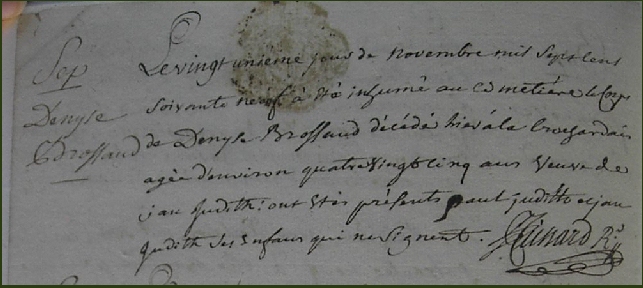 Sep
Denyse
Brossaud
Le vingt unième jour de novembre mil sept cens
soixante neuf à été inhumé au cimetière le Corps
de Denyse Brossaud décédé hier à la
agée d'environ quatre vingt cinq ans veuve de
jan judith: ont étés présents paul judith et jan
judith ses enfans qui ne signent.